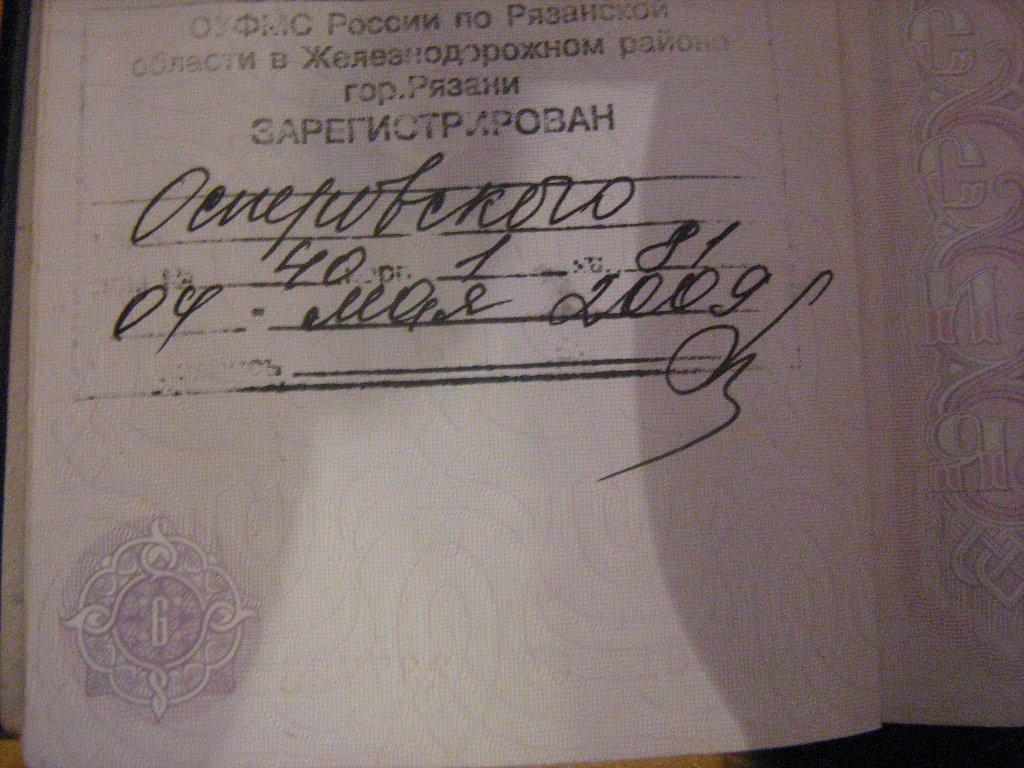 ОУФМС России по Рязанской
области в Железнодорожном районе
гор.Рязани
ЗАРЕГИСТРИРОВАН
Островского
40 корп. 1 кв. 81
04 мая 2009
6